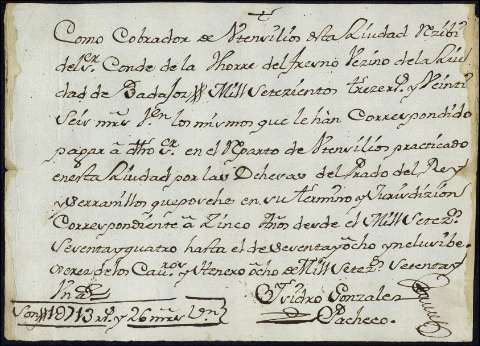 Como Cobrador de Utensilios desta Ciudad Rezibi
del Sr. Conde de la Thorre del fresno Vezino de la Ciu
dad de Badajoz Mill Setezientos treze rs. y Veinti
Seis mrs. Vn. los mismos que le hàn Correspondido
pagar à dho Sr. en el Reparto de Utensilios practicado
en esta Ciudad por las Dehesas del Prado del Rey
y Serranillos que poshe en su termino y Jurisdizion
Correspondiente à Zinco Años desde el Mill Setez.
Seventa y quatro hasta el de Seventa y ocho ynclusibe
Xerez de los Cavros. y Henero ôcho de Mill Setez. Setenta y
Son 1@713 rs. y 26 mrs. Vn.
Ysidro Gonzalez
Pacheco.